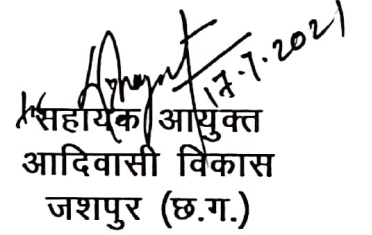 17.7.2021
सहायक आयुक्त
आदिवासी विकास
जशपुर (छ.ग.)